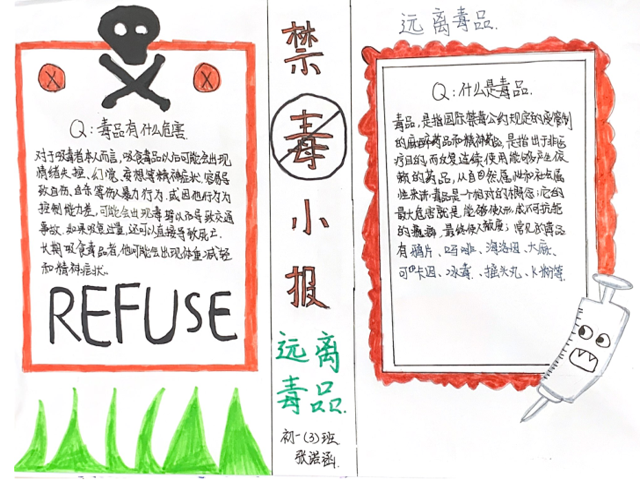 Q:毒品有什么危害
对于吸毒者本人而言,吸食毒品以后可能会出现
情绪失控、幻觉、妄想等精神症状,容易导
致自伤、自杀、害伤人暴力行为.或因他行为
控制能力差,可能会出现毒驾以而导致交通
事故.如果吸食过量,还可以直接导致死亡.
长期吸食毒品者,他可能会出现体重减轻
和精神症状.
REFUSE
禁
毒
小
报
远离
毒品.
初一(3)班
张诺涵.
远离毒品.
Q:什么是毒品.
毒品,是指国际禁毒公约规定的受管制
的麻醉药品和精神药品,是指出于非医
疗目的而反复连续使用能够产生依
赖的药品,从自然属性和社会属
性来讲,毒品是一个相对的概念;它的
最大危害就是能够使人形成不可抗拒
的
最终使人
常见的毒品
有鸦片、吗啡、海洛因、大麻、
可卡因、冰毒、摇头丸、K粉等.